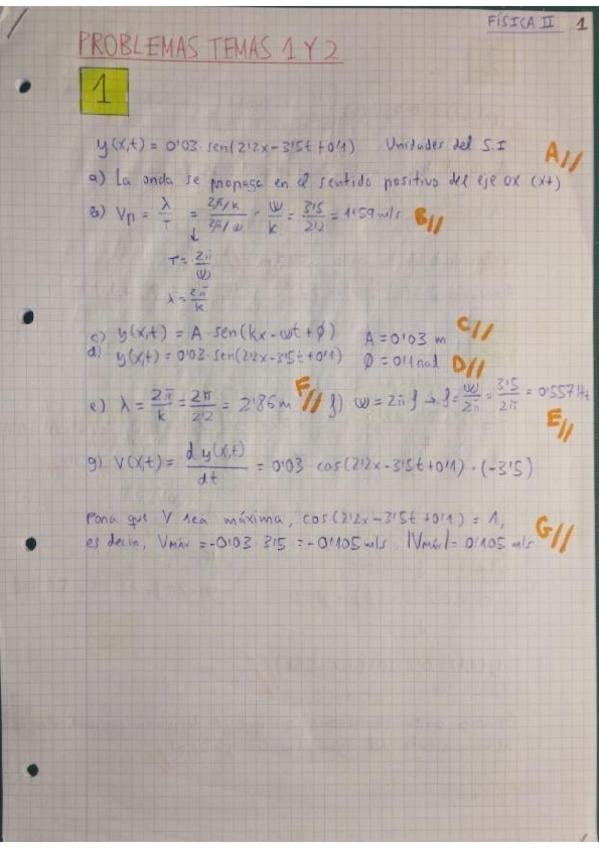 FÍSICA II 1
PROBLEMAS TEMAS 1 Y 2
1
y(x,t) = 0'03 · sen(2'2x - 3'5t + 0'1) Unidades del S.I
A//
a) La onda se propaga en el sentido positivo del eje OX (x+)
b) Vp = λ/T = (2π/k)/(2π/ω) = ω/k = 3'5/2'2 = 1'59 m/s B//
↓
T = 2π/ω
λ = 2π/k
c) y(x,t) = A · sen(kx - ωt + ϕ) A = 0'03 m C//
d) y(x,t) = 0'03 · sen(2'2x - 3'5t + 0'1) ϕ = 0'1 rad D//
e) λ = 2π/k = 2π/2'2 = 2'86 m F// f) ω = 2π f → f = ω/2π = 3'5/2π = 0'557 Hz
E//
g) V(x,t) = d y(x,t)/dt = 0'03 · cos(2'2x - 3'5t + 0'1) · (-3'5)
Para que V sea máxima, cos(2'2x - 3'5t + 0'1) = 1,
es decir, Vmáx = -0'03 · 3'5 = -0'105 m/s. |Vmáx| = 0'105 m/s G//
1